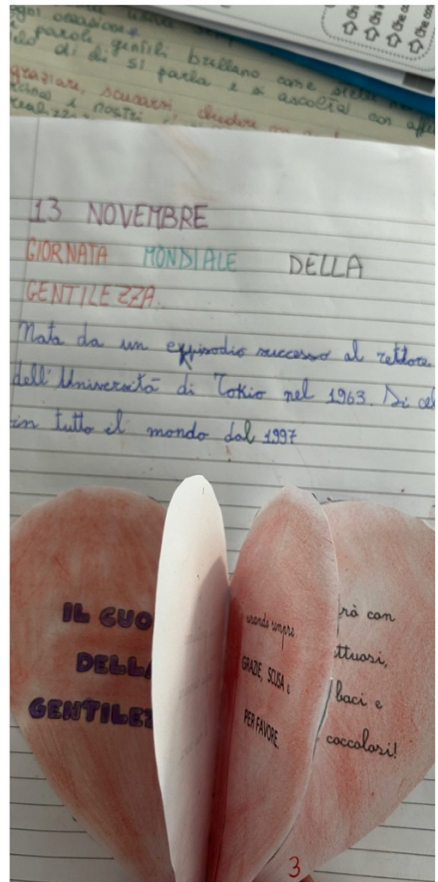 ogni occasione
parole gentili brillano come stelle
di chi si parla e si ascolta con
scusarsi, chiedere
nostri
13 NOVEMBRE
GIORNATA MONDIALE DELLA
GENTILEZZA.
Nata da un episodio successo al rettore
dell'Università di Tokio nel 1963. Si cel
in tutto il mondo dal 1997
IL CUO
DELLA
GENTILEZ
usando sempre
GRAZIE, SCUSA e
PER FAVORE.
rò con
ttuosi,
baci e
coccolosi!
3